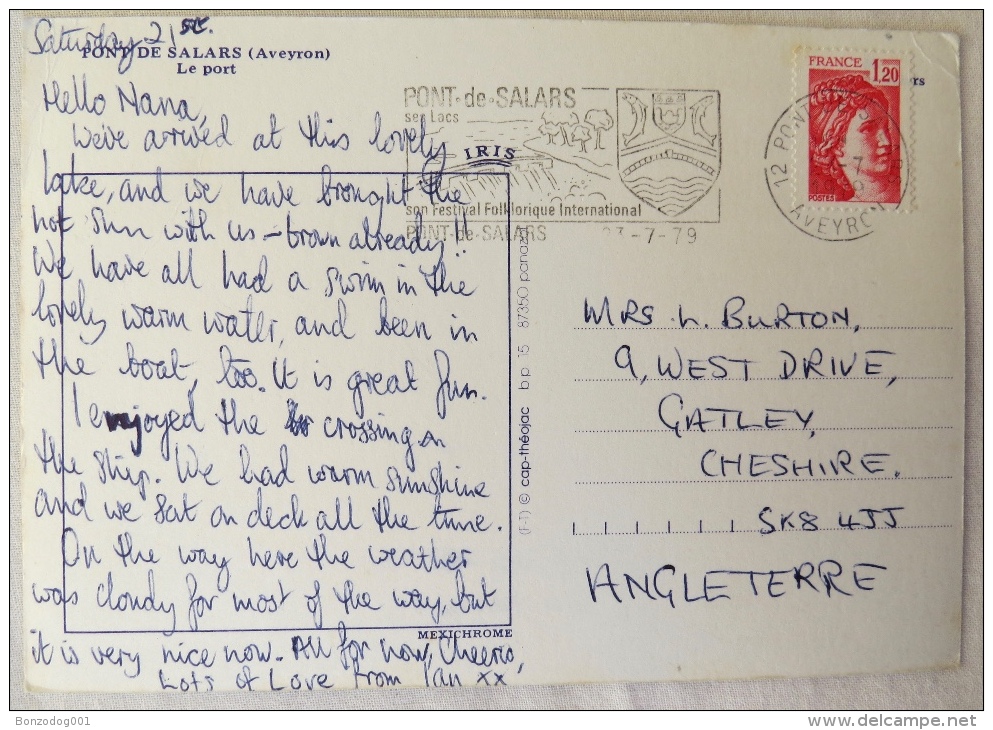 Saturday 21st.
PONT DE SALARS (Aveyron)
Le port
Hello Nana,
We've arrived at this lovely
lake, and we have brought the
hot sun with us - brown already!
We have all had a swim in the
lovely warm water, and been in
the boat, too. It is great fun.
I enjoyed the crossing on
the ship. We had warm sunshine
and we sat on deck all the time.
On the way here the weather
was cloudy for most of the way, but
it is very nice now. All for now, Cheerio,
Lots of Love from Ian xx
IRIS
MEXICHROME
(F-T) © cap-théojac bp 15 87350 panazol
PONT-de-SALARS
ses Lacs
son Festival Folklorique International
PONT-de-SALARS 23-7-79
FRANCE 1,20
POSTES
rs
12 PONT
AVEYRON
MRS L. BURTON,
9, WEST DRIVE,
GATLEY,
CHESHIRE.
SK8 4JJ
ANGLETERRE
Bonzodog001
delcampe.net